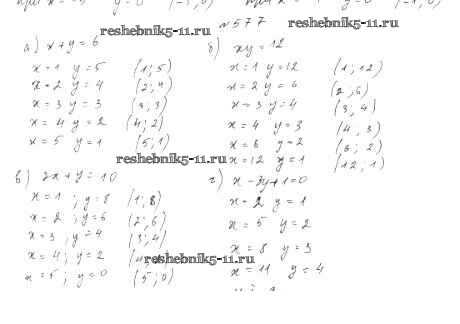 №577
reshebnik5-11.ru
reshebnik5-11.ru
а) x+y=6
x=1 y=5 (1;5)
x=2 y=4 (2;4)
x=3 y=3 (3;3)
x=4 y=2 (4;2)
x=5 y=1 (5;1)
б) xy=12
x=1 y=12 (1;12)
x=2 y=6 (2;6)
x=3 y=4 (3;4)
x=4 y=3 (4;3)
x=6 y=2 (6;2)
x=12 y=1 (12;1)
reshebnik5-11.ru
в) 2x+y=10
x=1; y=8 (1;8)
x=2; y=6 (2;6)
x=3; y=4 (3;4)
x=4; y=2
x=5; y=0 (5;0)
г) x-3y+1=0
x=2 y=1
x=5 y=2
reshebnik5-11.ru
x=8 y=3
x=11 y=4